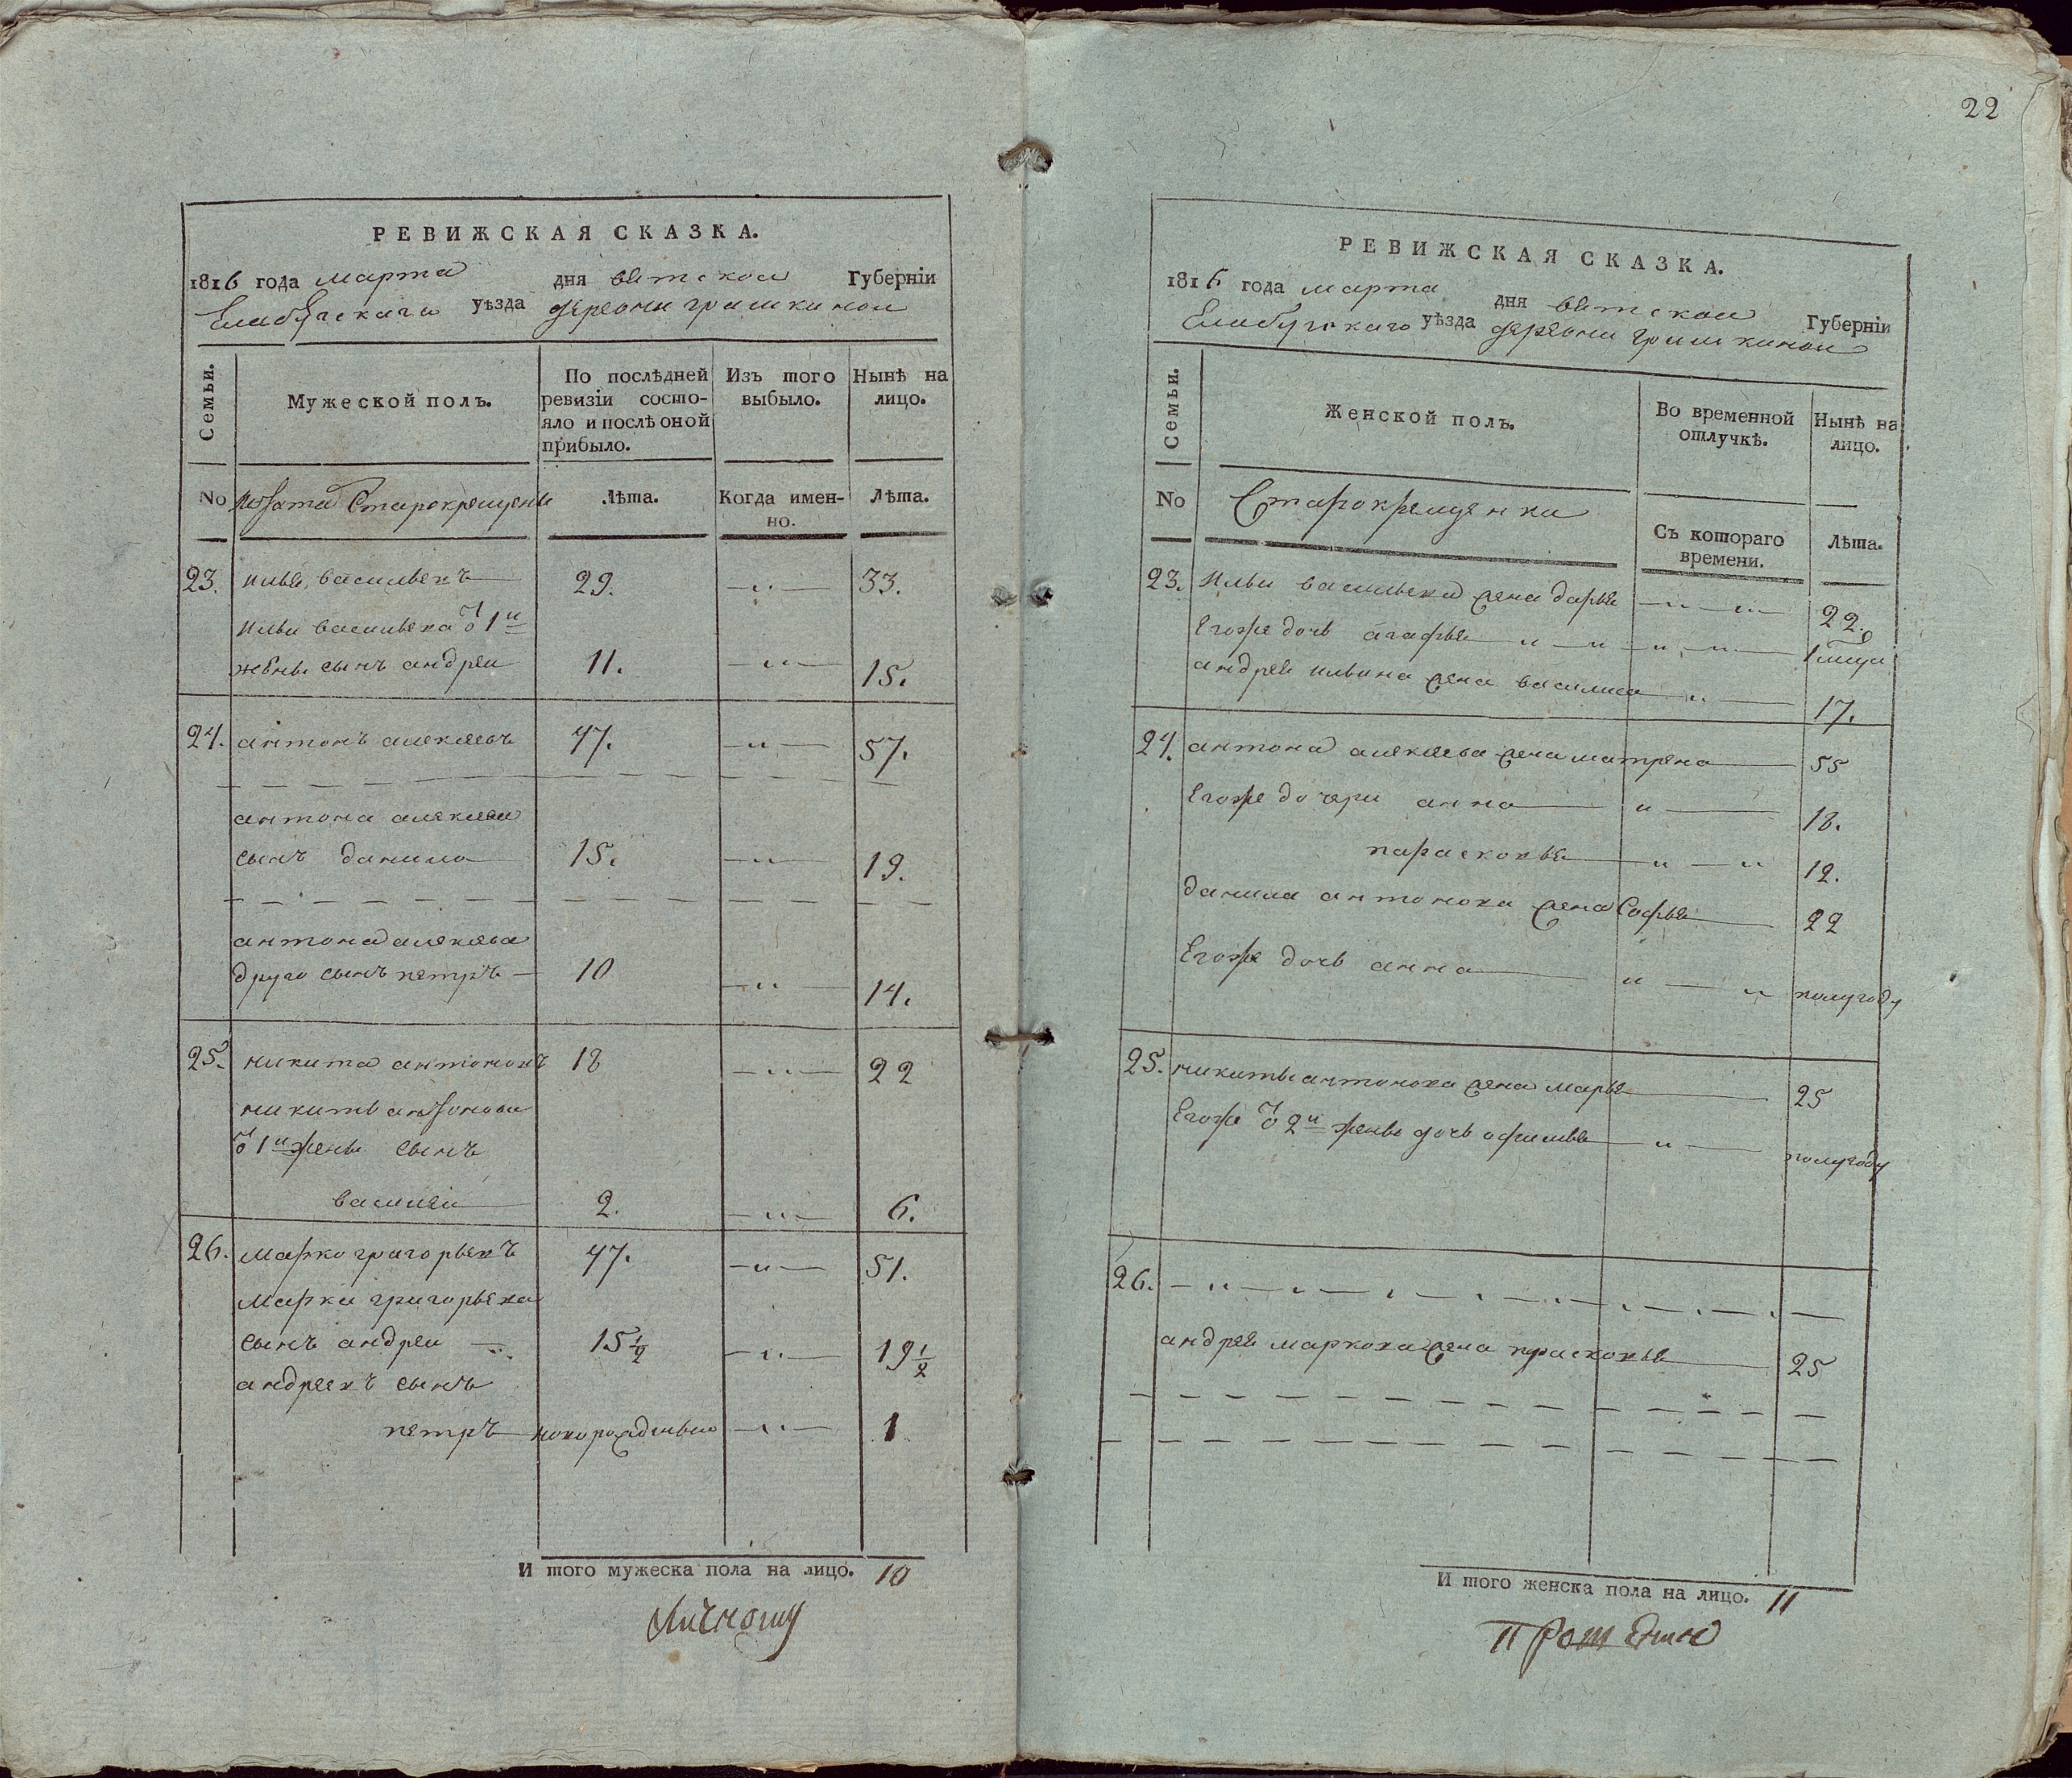 22
РЕВИЖСКАЯ СКАЗКА.
1816 года марта дня вятской Губерніи
Елабугскаго уѣзда деревни гришкиной
Семьи.
Мужеской полъ.
По послѣдней ревизіи состо-
яло и послѣ оной
прибыло.
Изъ того
выбыло.
Нынѣ на
лицо.
No Старокрещены
Лѣта.
Когда имен-
но.
Лѣта.
23. илья васильевъ 29. 33.
ильи васильева о 1й
жены сынъ андреи 11. 15.
24. антонъ алексеевъ 47. 57.
антона алексеева
сынъ данило 15. 19.
антона алексеева
друго сынъ петръ 10 14.
25. никита антоновъ 18 22
никиты антонова
о 1й жены сынъ
василеи 2. 6.
26. марко григорьевъ 47. 51.
марки григорьева
сынъ андреи 15 1/2 19 1/2
андреевъ сынъ
петръ новорожденыи 1
И того мужеска пола на лицо. 10
РЕВИЖСКАЯ СКАЗКА.
1816 года марта дня вятской Губерніи
Елабугскаго уѣзда деревни гришкиной
Семьи.
Женской полъ.
Во временной
отлучкѣ.
Нынѣ на
лицо.
No Старокрещенки
Съ котораго
времени.
Лѣта.
23. Ильи васильева жена дарья 22.
Егоже дочь агафья 1 мца
андрея ильина жена василиса 17.
24. антона алексеева жена матрена 55
Егоже дочери анна 18.
парасковья 12.
данила антонова жена Софья 22
Егоже дочь анна полугоду
25. никиты антонова жена марья 25
Егоже о 2й жены дочь офимья полугоду
26.
андрея маркова жена прасковья 25
И того женска пола на лицо. 11